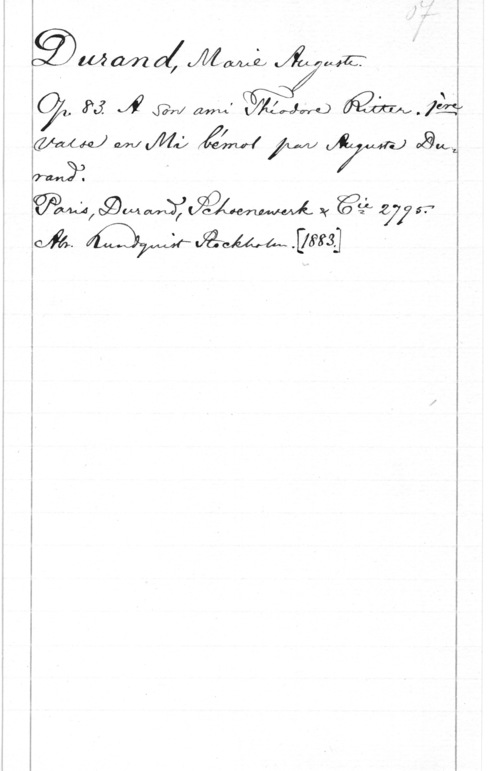 57
Durand, Marie Auguste.
Op. 83. A son ami Théodore Ritter. 1ère
Valse en Mi bémol par Auguste Du-
rand.
Paris, Durand, Schoenewerk & Cie 2795.
Abr. Lundquist Stockholm. [1883.]